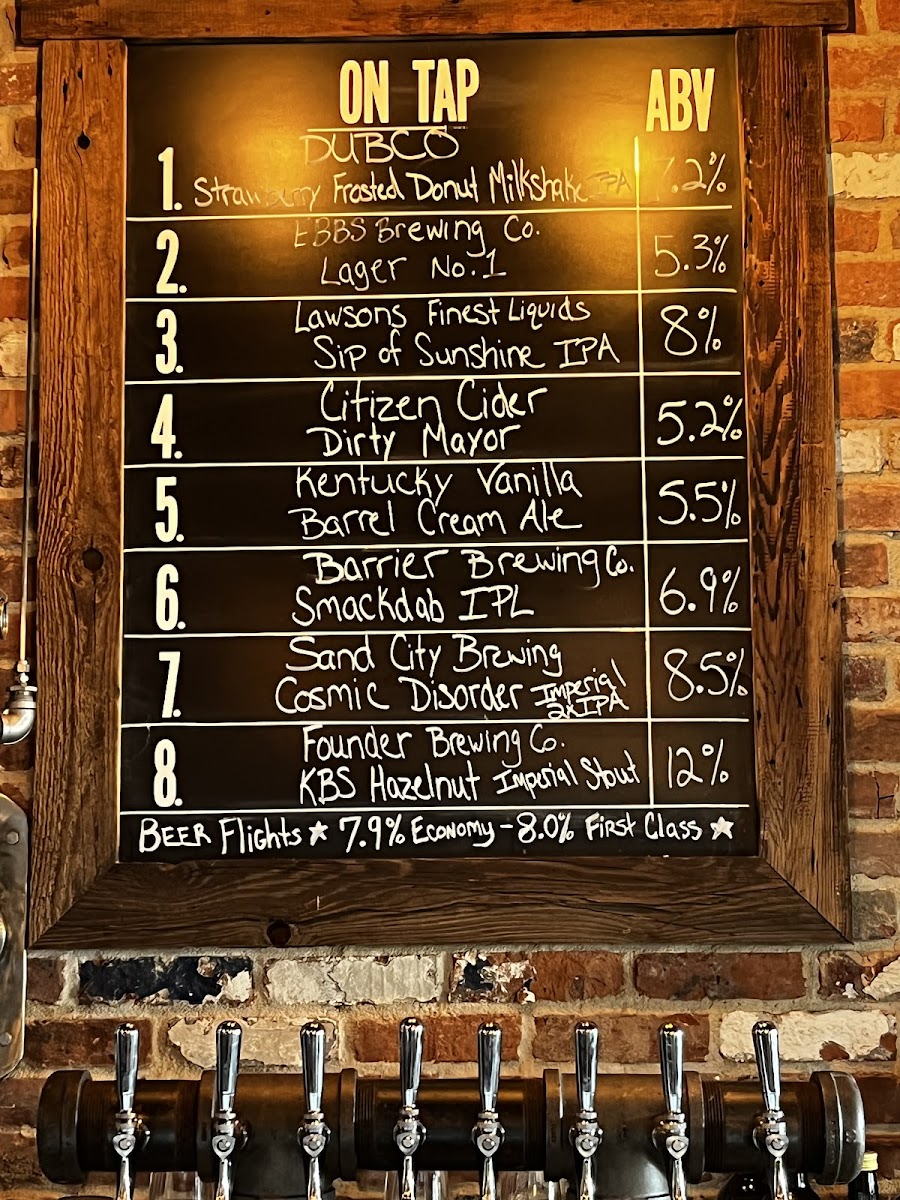 ON TAP ABV
DUBCO
1. Strawberry Frosted Donut Milkshake IPA 7.2%
EBBS Brewing Co.
2. Lager No.1 5.3%
Lawsons Finest Liquids
3. Sip of Sunshine IPA 8%
Citizen Cider
4. Dirty Mayor 5.2%
Kentucky Vanilla
5. Barrel Cream Ale 5.5%
Barrier Brewing Co.
6. Smackdab IPL 6.9%
Sand City Brewing
7. Cosmic Disorder Imperial 2xIPA 8.5%
Founder Brewing Co.
8. KBS Hazelnut Imperial Stout 12%
BEER Flights ★ 7.9% ECONOMY - 8.0% FIRST CLASS ★